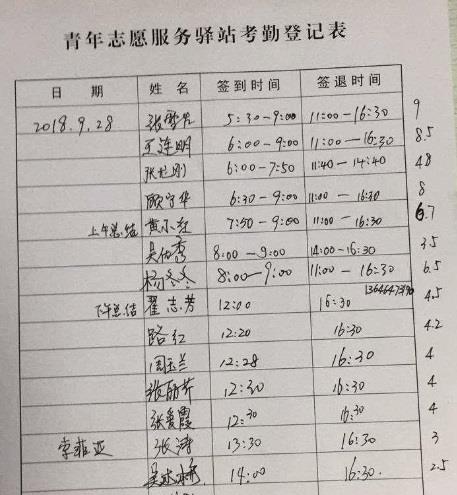 青年志愿服务驿站考勤登记表
日 期 姓 名 签到时间 签退时间
2018.9.28 张雪芹 5:30-9:00 11:00-16:30 9
王连明 6:00-9:00 11:00-16:30 8.5
6:00-7:50 11:40-14:40 4.8
顾守华 6:30-9:00 11:00-16:30 8
上午总结 黄小红 7:50-9:00 11:00-16:30 6.7
8:00-9:00 14:00-16:30 3.5
杨冬冬 8:00-9:00 11:00-16:30 6.5
下午总结 翟志芳 12:00 16:30 4.5
路红 12:20 16:30 4.2
周玉兰 12:28 16:30 4
12:30 16:30 4
张爱霞 12:30 16:30 4
李菲亚 张涛 13:30 16:30 3
14:00 16:30. 2.5